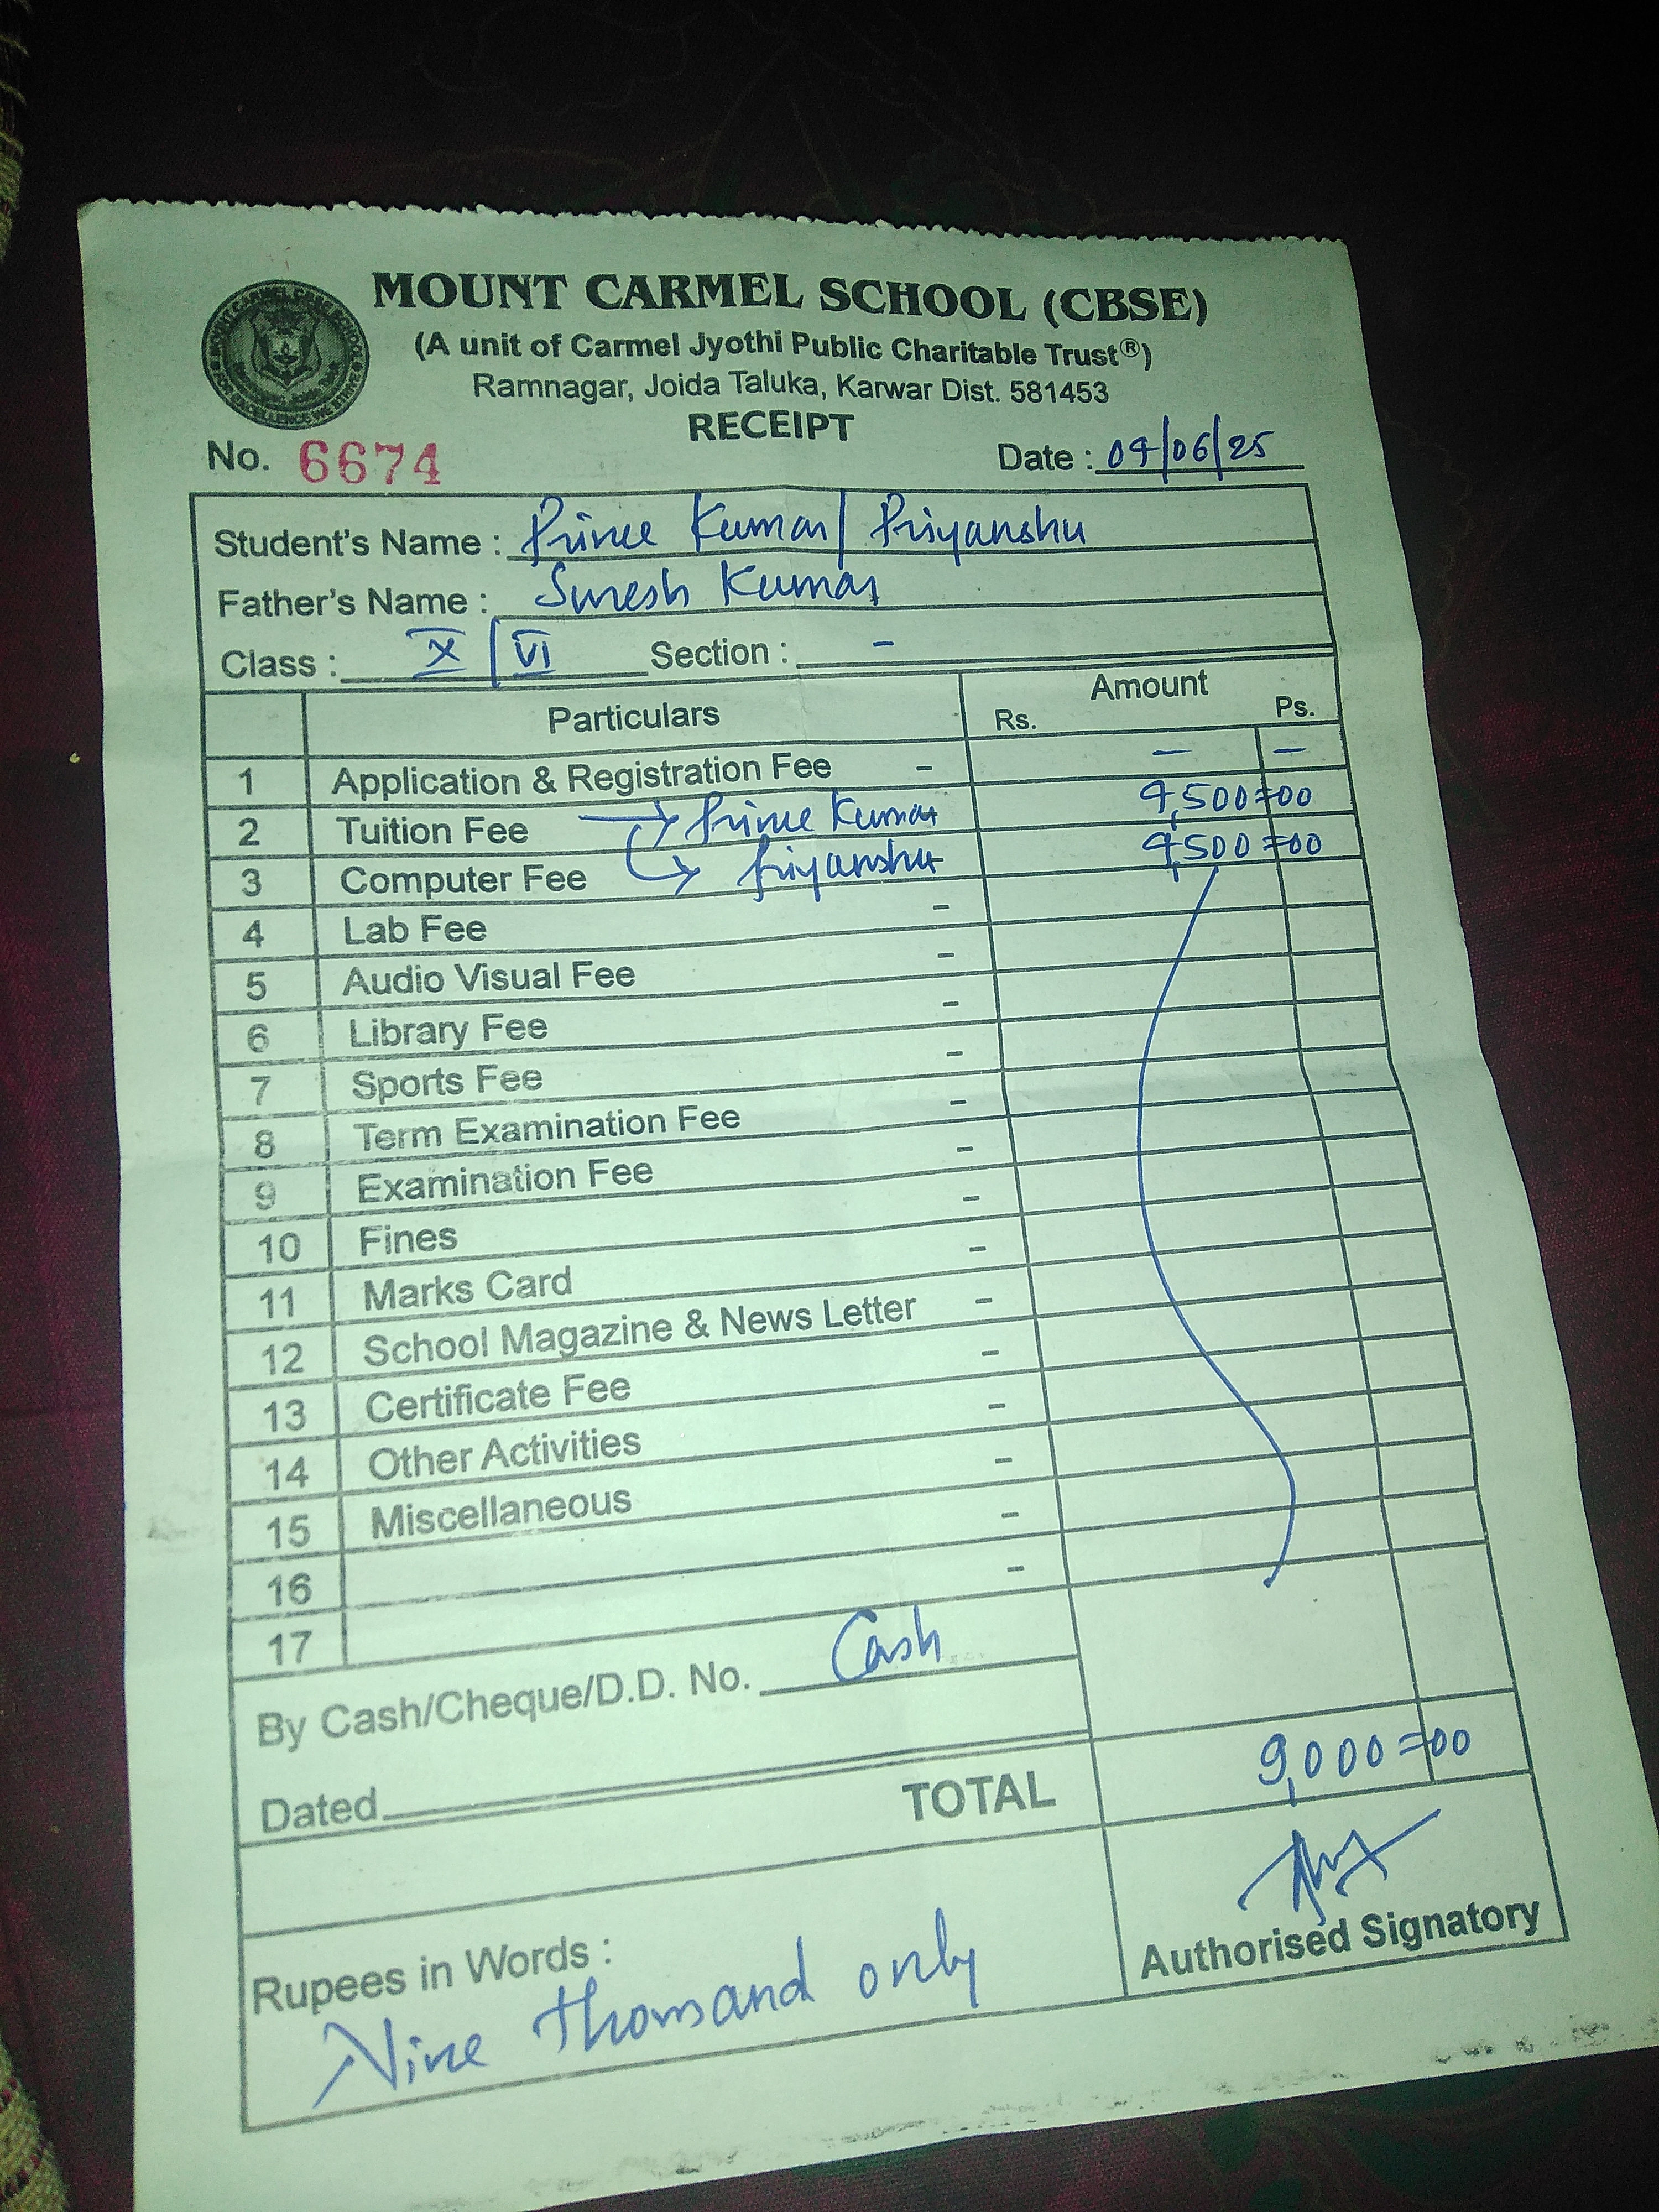 MOUNT CARMEL SCHOOL (CBSE)
(A unit of Carmel Jyothi Public Charitable Trust®)
Ramnagar, Joida Taluka, Karwar Dist. 581453
RECEIPT
No. 6674 Date : 04/06/25
Student's Name : Prince Kumar/ Priyanshu
Father's Name : Suresh Kumar
Class : X / VI Section : -
Particulars Amount
Rs. Ps.
1 Application & Registration Fee - - -
2 Tuition Fee → Prince Kumar 4,500=00
3 Computer Fee → Priyanshu 4,500=00
4 Lab Fee -
5 Audio Visual Fee -
6 Library Fee -
7 Sports Fee -
8 Term Examination Fee -
9 Examination Fee -
10 Fines -
11 Marks Card -
12 School Magazine & News Letter -
13 Certificate Fee -
14 Other Activities -
15 Miscellaneous -
16 -
17 -
By Cash/Cheque/D.D. No. Cash
Dated TOTAL 9,000=00
Rupees in Words :
Nine thousand only
Authorised Signatory